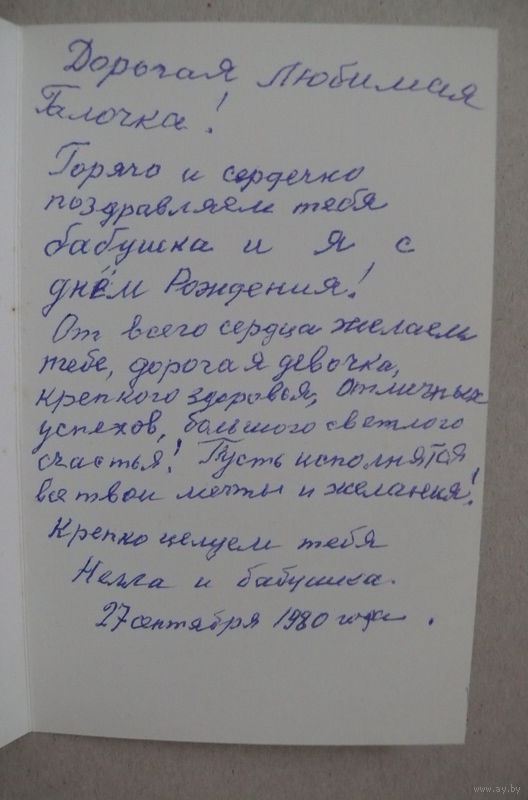 Дорогая Любимая
Галочка!
Горячо и сердечно
поздравляем тебя
бабушка и я с
днём Рождения!
От всего сердца желаем
тебе, дорогая девочка,
крепкого здоровья, отличных
успехов, большого светлого
счастья! Пусть исполнятся
все твои мечты и желания!
Крепко целуем тебя
Нелла и бабушка.
27 сентября 1980 года.
www.ay.by